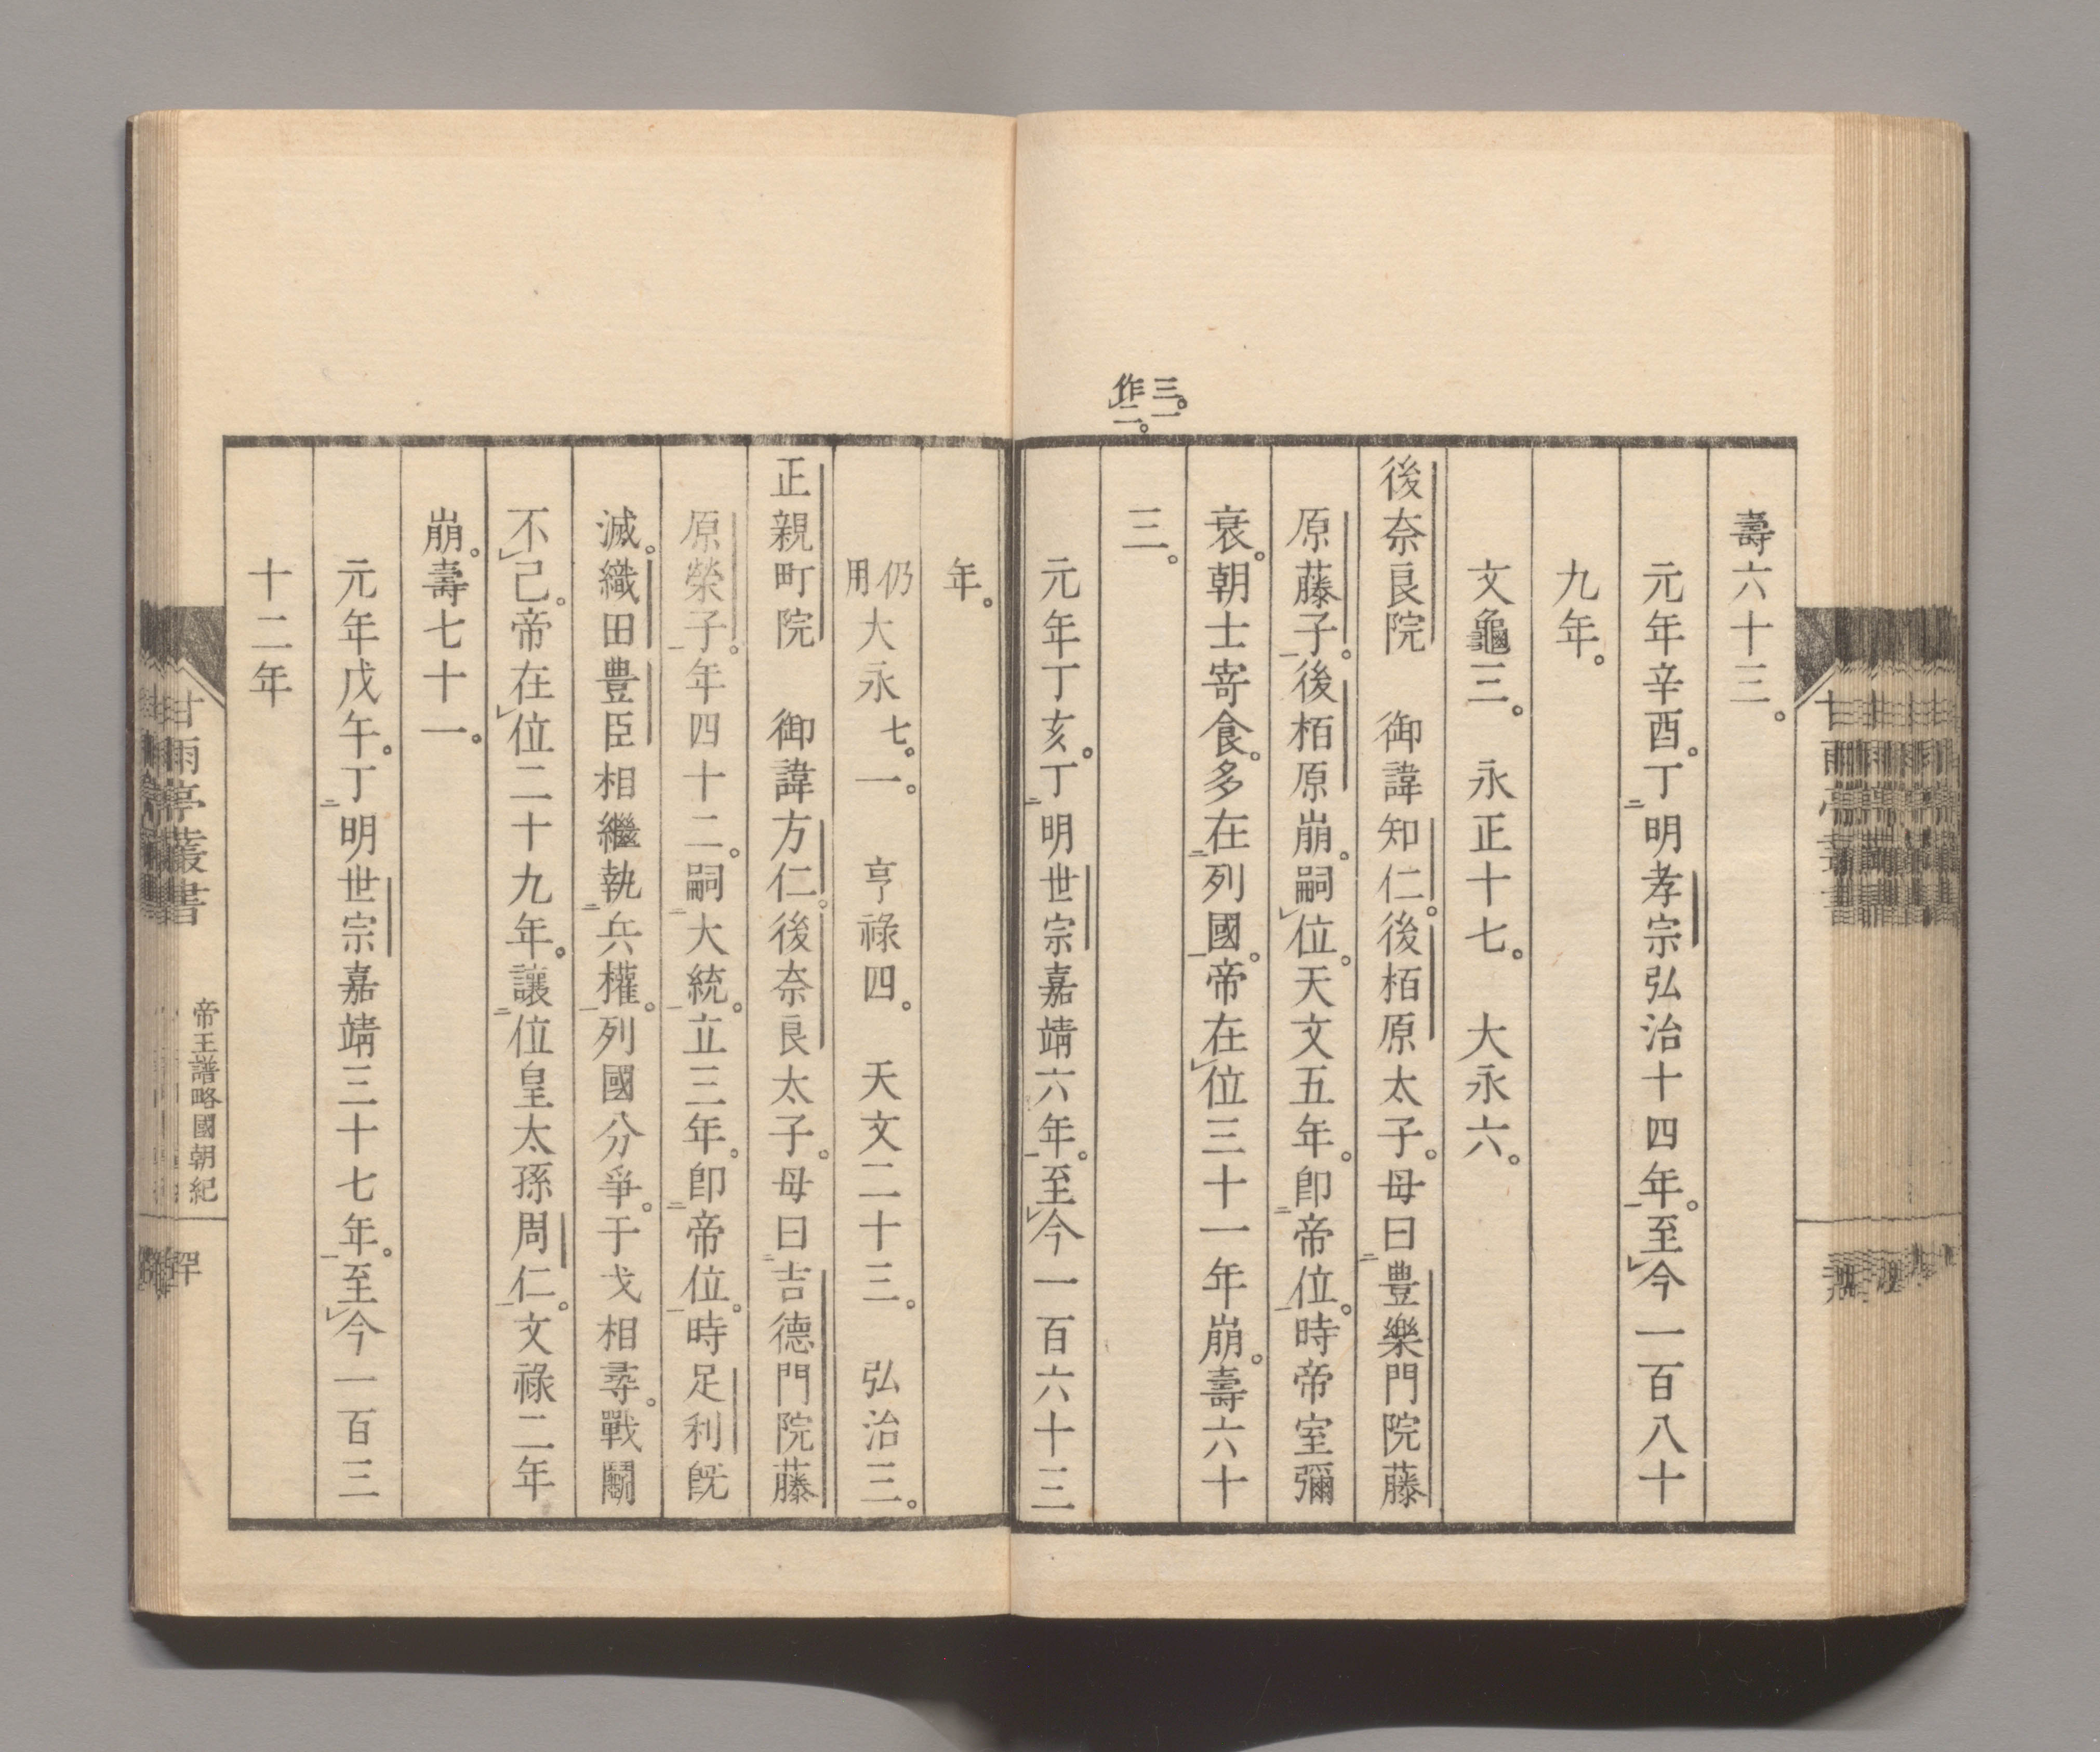 壽六十三。
元年辛酉。丁明孝宗弘治十四年。至今一百八十
九年。
文龜三。　永正十七。　大永六。
後奈良院　御諱知仁。後栢原太子。母曰豊樂門院藤
原藤子。後栢原崩。嗣位。天文五年。卽帝位。時帝室彌
衰。朝士寄食。多在列國。帝在位三十一年崩。壽六十
三。
三。一
作二。
元年丁亥。丁明世宗嘉靖六年。至今一百六十三
年。
仍用大永七。一。　亨祿四。　天文二十三。　弘治三。
正親町院　御諱方仁。後奈良太子。母曰吉德門院藤
原榮子。年四十二。嗣大統。立三年。卽帝位。時足利旣
滅。織田豊臣相繼執兵權。列國分爭。于戈相尋。戰鬭
不已。帝在位二十九年。讓位皇太孫周仁。文祿二年
崩。壽七十一。
元年戊午。丁明世宗嘉靖三十七年。至今一百三
十二年
甘雨亭叢書
帝王譜略國朝紀